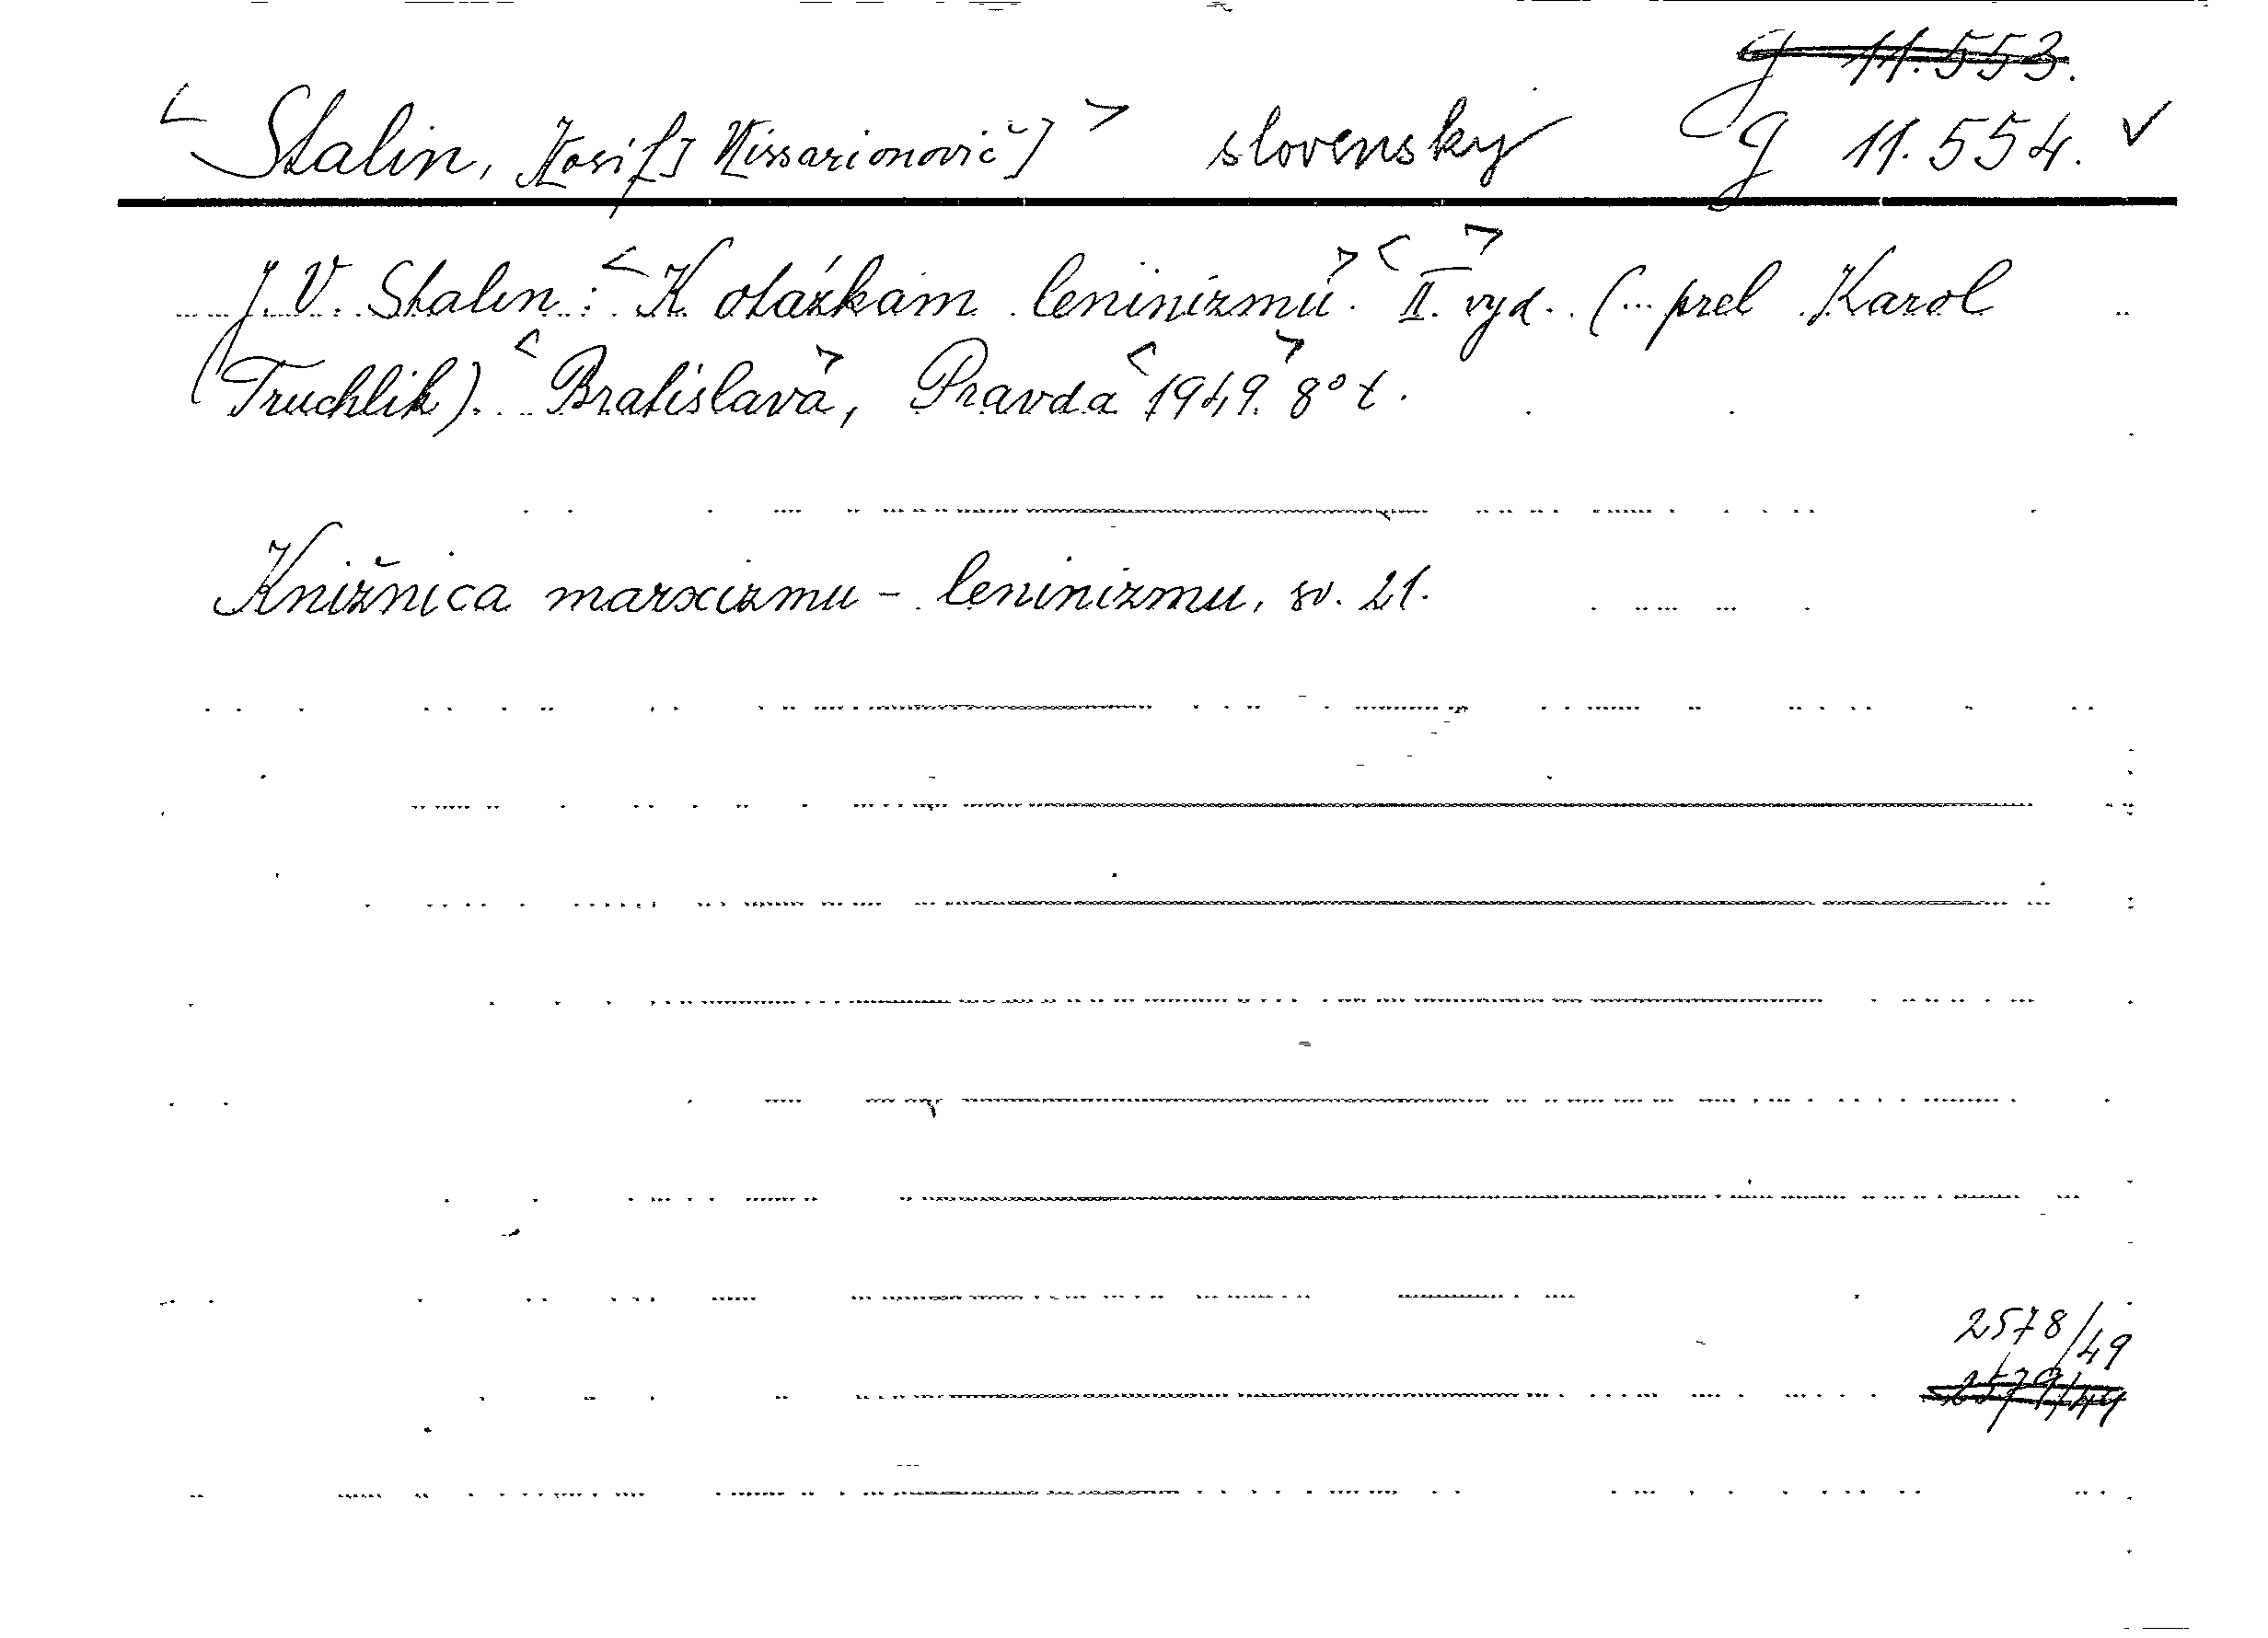 g 11.553.
< Stalin, J[osif] V[issarionovič] > slovensky g 11.554. ✓
J. V. Stalin: <K otázkam leninizmu>. <II.> vyd. (... prel Karol
(Truchlik). <Bratislava>, Pravda <1949.> 8° t.
Knižnica marxizmu - leninizmu, sv. 21.
2578/49
2579/49